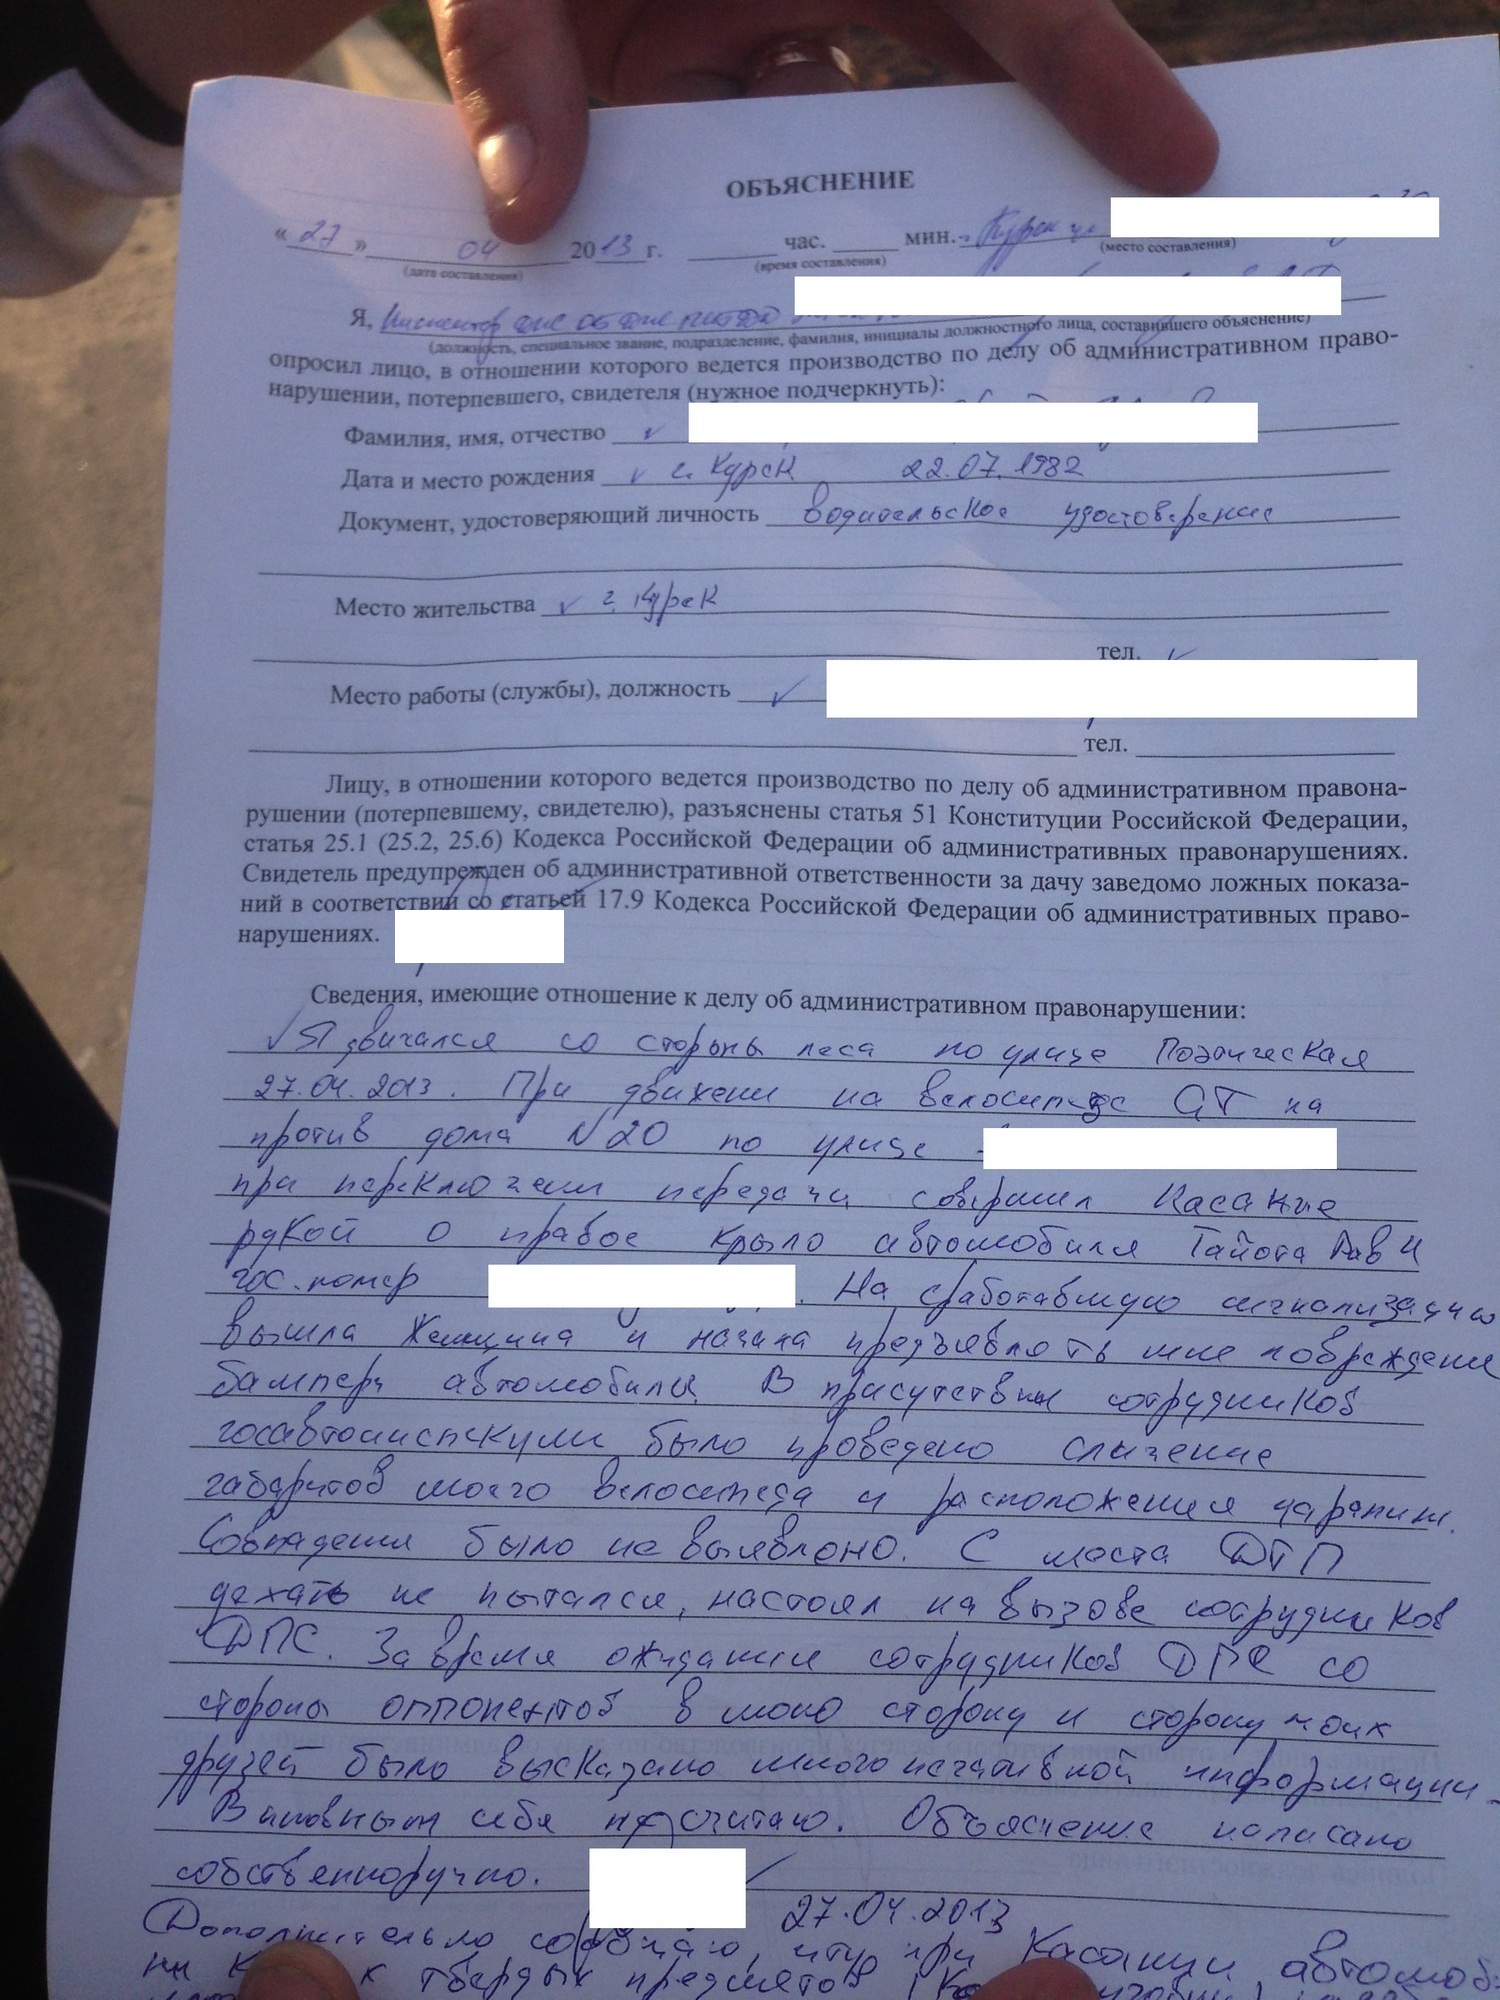 ОБЪЯСНЕНИЕ
« 27 » 04 2013 г. час. мин. Курск ул
(дата составления) (время составления) (место составления)
Я, Инспектор дпс об дпс
(должность, специальное звание, подразделение, фамилия, инициалы должностного лица, составившего объяснение)
опросил лицо, в отношении которого ведется производство по делу об административном право-
нарушении, потерпевшего, свидетеля (нужное подчеркнуть):
Фамилия, имя, отчество
Дата и место рождения г. Курск 22.07.1982
Документ, удостоверяющий личность водительское удостоверение
Место жительства г. Курск
тел.
Место работы (службы), должность
тел.
Лицу, в отношении которого ведется производство по делу об административном правона-
рушении (потерпевшему, свидетелю), разъяснены статья 51 Конституции Российской Федерации,
статья 25.1 (25.2, 25.6) Кодекса Российской Федерации об административных правонарушениях.
Свидетель предупрежден об административной ответственности за дачу заведомо ложных показа-
ний в соответствии со статьей 17.9 Кодекса Российской Федерации об административных право-
нарушениях.
Сведения, имеющие отношение к делу об административном правонарушении:
Я двигался со стороны леса по улице Поэтическая
27.04.2013. При движени на велосипеде GT на
против дома №20 по улице
при переключении передачи совершил касание
рукой о правое крыло автомобиля Тайота Рав 4
гос. номер . На сработавшую сигнализацию
вышла женщина и начала предъявлять мне повреждение
бампера автомобиля. В присутствии сотрудников
госавтоинспекции было проведено сличение
габаритов моего велосипеда и расположения царапин.
Совпадения было не выявлоно. С места ДТП
уехать не пытался, настоял на вызове сотрудников
ДПС. За время ожидания сотрудников ДПС со
стороны оппонентов в мою сторону и сторону моих
друзей было высказано много негативной информации.
Виновным себя не считаю. Объяснение написано
собственноручно.
27.04.2013
Дополнительно сообщаю, что при касании автомоб
ни к твердых предметов